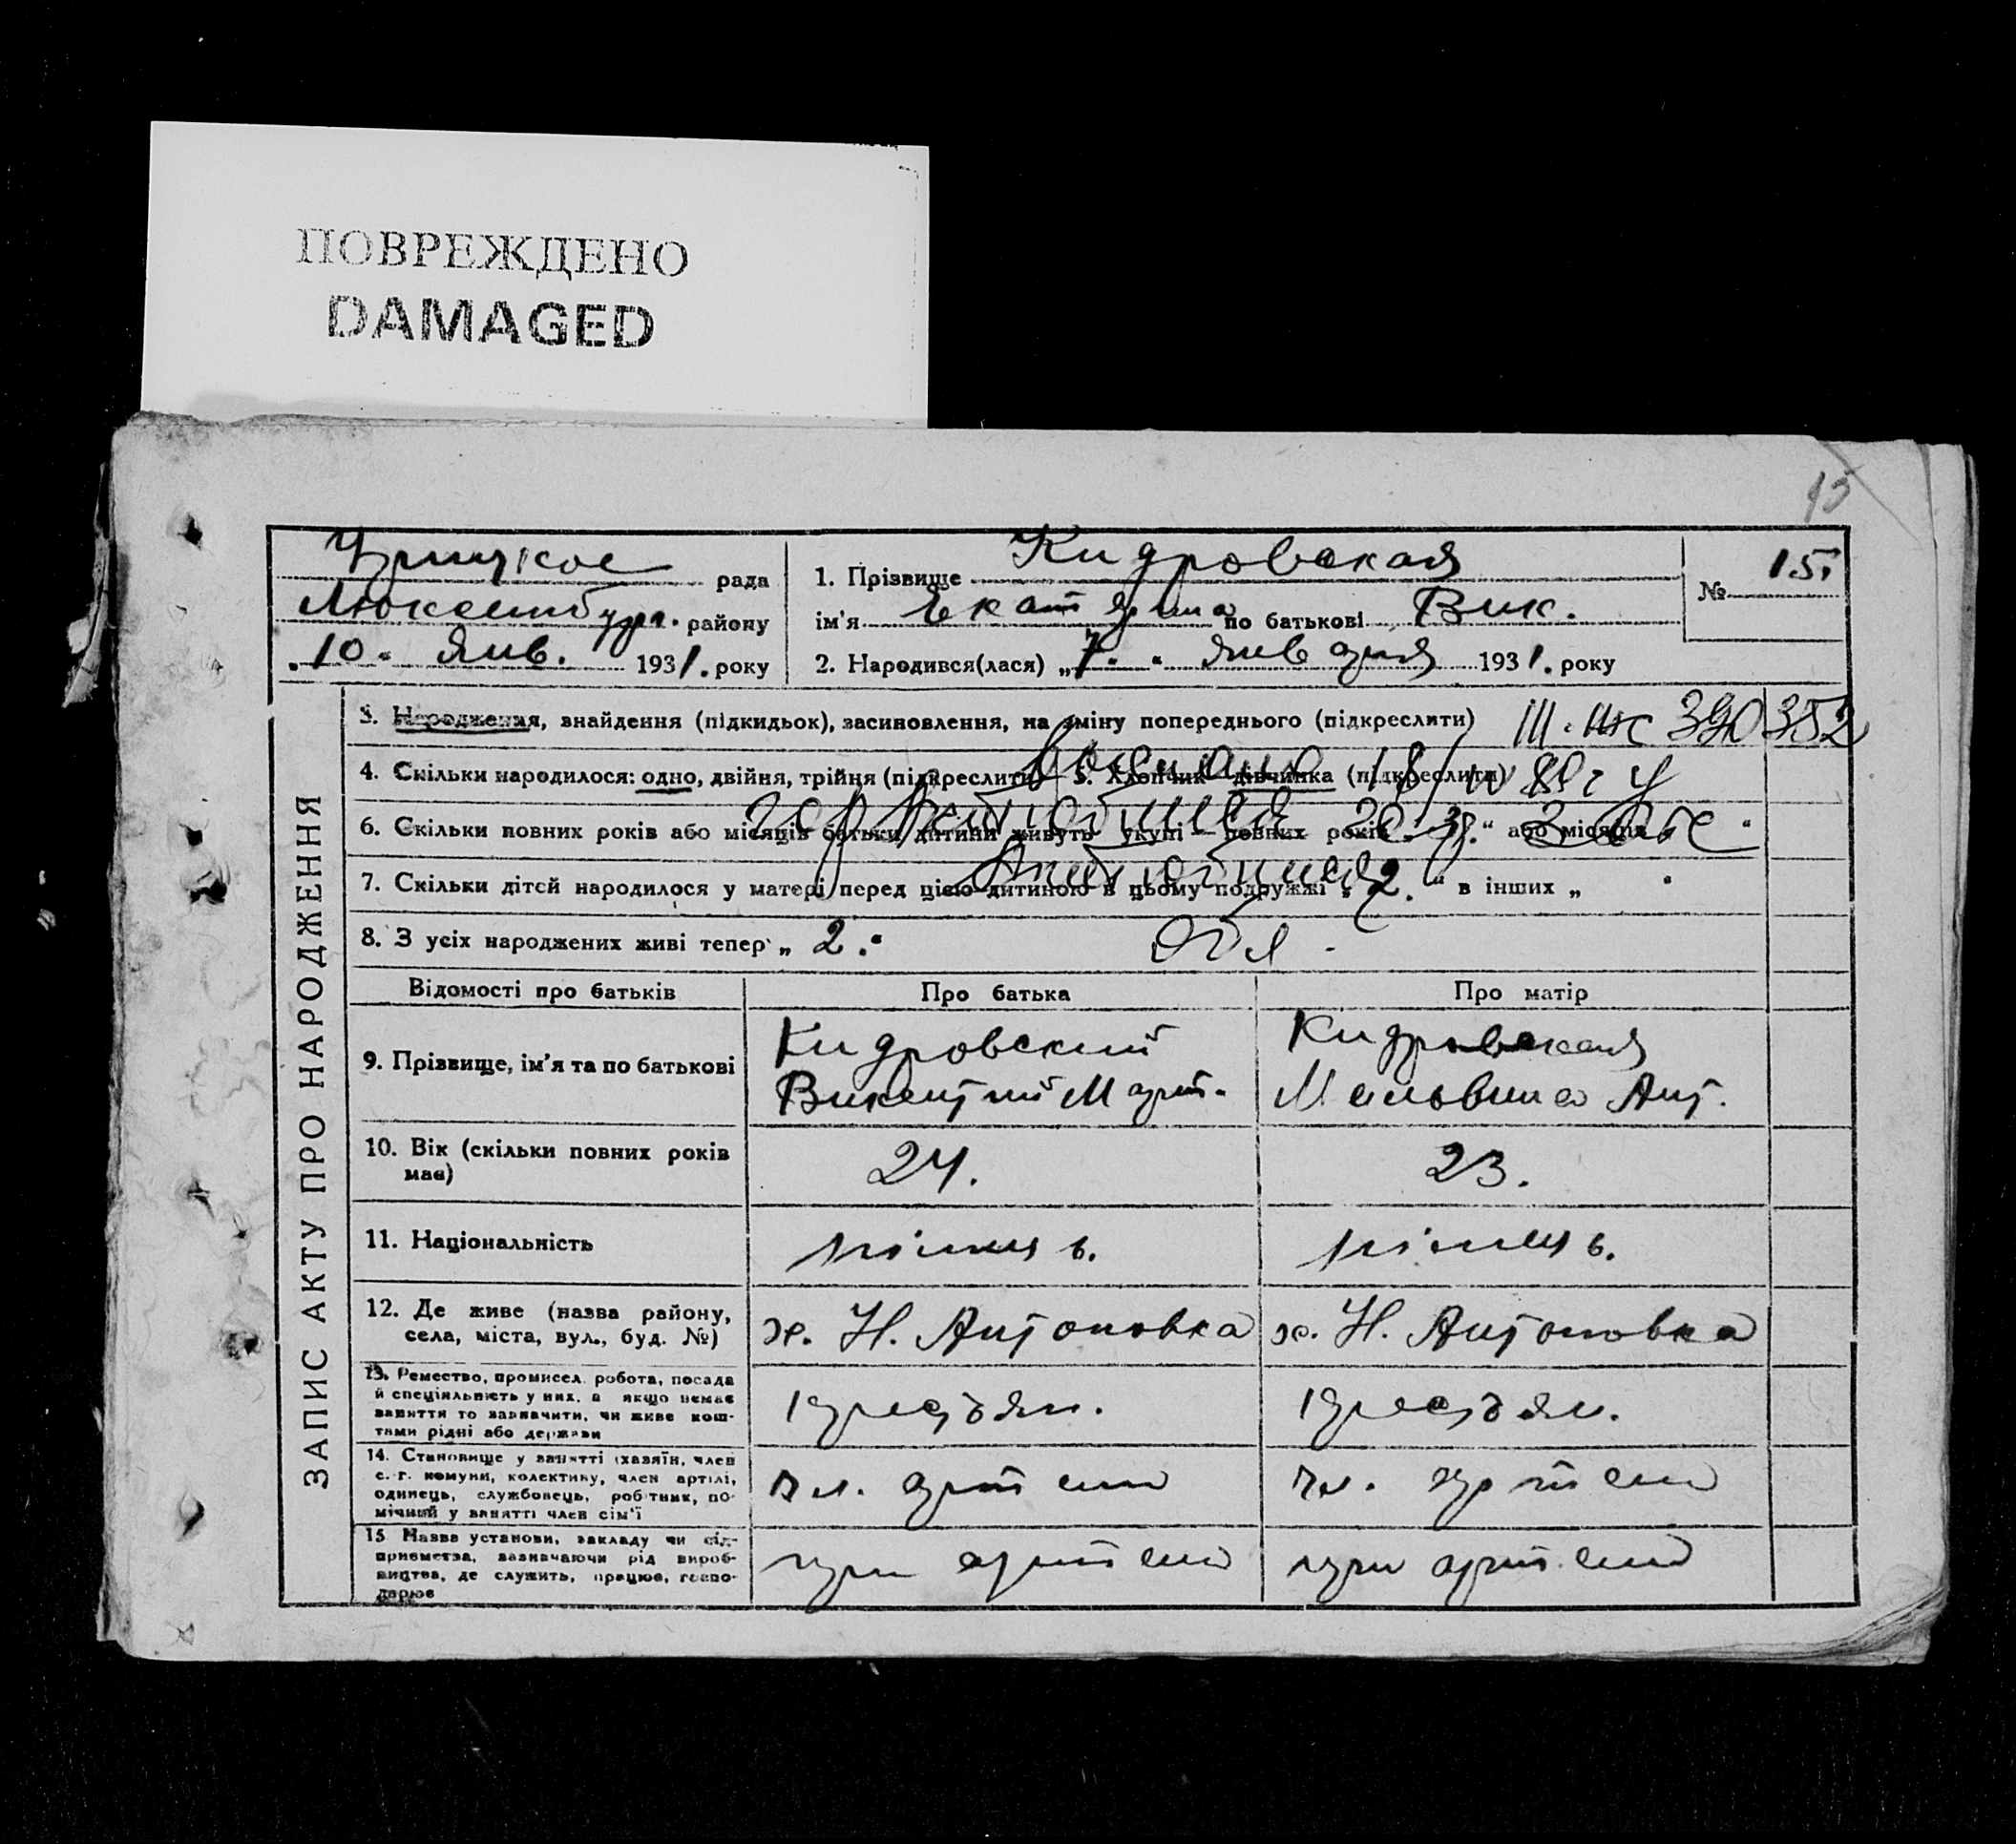 ПОВРЕЖДЕНО
DAMAGED
15
рада
Люксембург. району
10. Янв. 1931. року
1. Прізвище Кидровская
ім'я Екатерина по батькові Вик.
2. Народився(лася) „7." января 1931. року
№ 15.
ЗАПИС АКТУ ПРО НАРОДЖЕННЯ
3. Народження, знайдення (підкидьок), засиновлення, на зміну попереднього (підкреслити) III 390352
4. Скільки народилося: одно, двійня, трійня (підкреслити) 5. Хлопчик дівчинка (підкреслити)
6. Скільки повних років або місяців батьки дитини живуть укупі повних років „3." або місяців "
7. Скільки дітей народилося у матері перед цією дитиною в цьому подружжі „2." в інших „ "
8. З усіх народжених живі тепер „2."
обл
Відомості про батьків Про батька Про матір
9. Прізвище, ім'я та по батькові Кидровский Викентий Март. Кидровская Мальвина Ант.
10. Вік (скільки повних років має) 24. 23.
11. Національність німець. німець.
12. Де живе (назва району, села, міста, вул., буд. №) х. Н. Антоновка х. Н. Антоновка
13. Ремество, промисел, робота, посада й спеціяльність у них, а якщо немає заняття то зазначити, чи живе коштами рідні або держави крестьян. крестьян.
14. Становище у занятті (хазяїн, член с.-г. комуни, колективу, член артілі, одинець, службовець, робітник, помічний у занятті член сім'ї чл. артели чл. артели
15 Назва установи, закладу чи підприємства, зазначаючи рід виробництва, де служить, працює, господарює при артели при артели